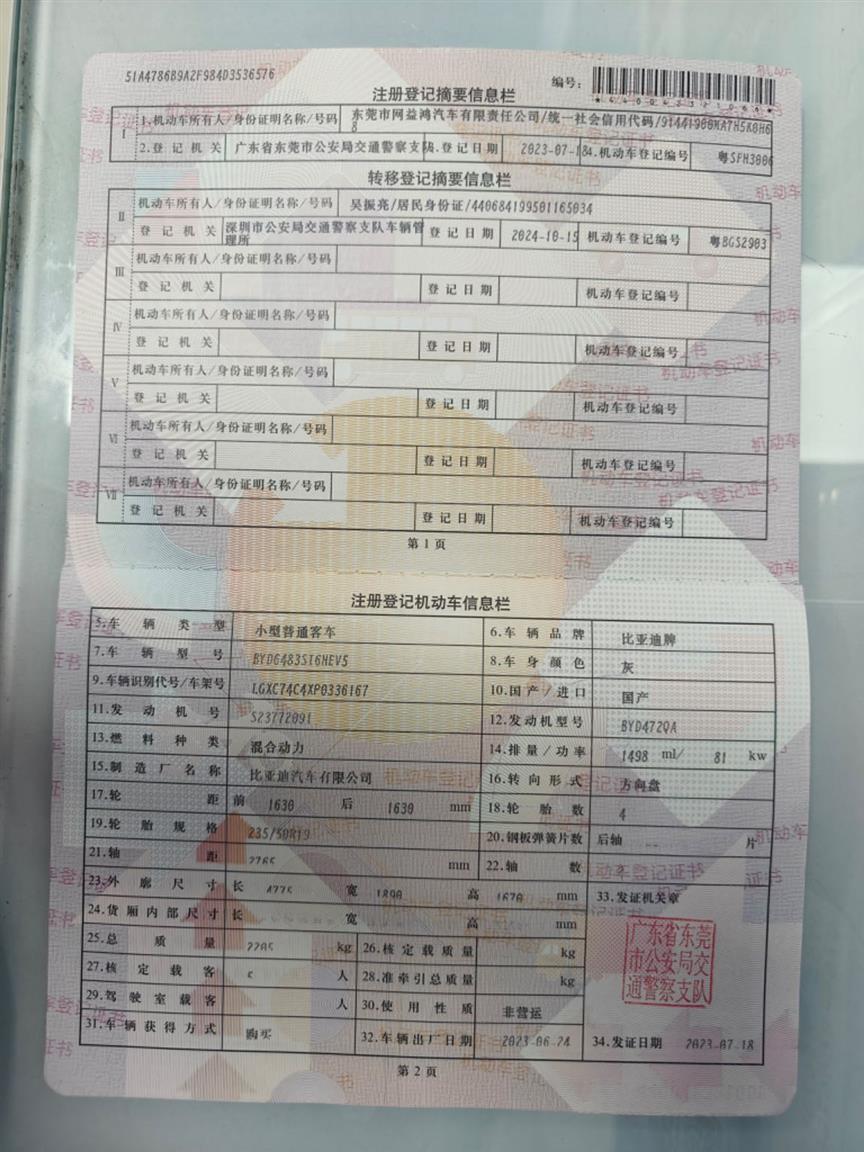 51A4786B9A2F984D3536576
编号:
注册登记摘要信息栏
I 1.机动车所有人/身份证明名称/号码 东莞市网益鸿汽车有限责任公司/统一社会信用代码/91441900MA7H5K0H68
2.登记机关 广东省东莞市公安局交通警察支队 3.登记日期 2023-07-18 4.机动车登记编号 粤SFH3006
转移登记摘要信息栏
II 机动车所有人/身份证明名称/号码 吴振亮/居民身份证/440684199501165034
登记机关 深圳市公安局交通警察支队车辆管理所 登记日期 2024-10-15 机动车登记编号 粤BGS2903
III 机动车所有人/身份证明名称/号码
登记机关 登记日期 机动车登记编号
IV 机动车所有人/身份证明名称/号码
登记机关 登记日期 机动车登记编号
V 机动车所有人/身份证明名称/号码
登记机关 登记日期 机动车登记编号
VI 机动车所有人/身份证明名称/号码
登记机关 登记日期 机动车登记编号
VII 机动车所有人/身份证明名称/号码
登记机关 登记日期 机动车登记编号
第1页
注册登记机动车信息栏
5.车辆类型 小型普通客车 6.车辆品牌 比亚迪牌
7.车辆型号 BYD6483ST6HEV5 8.车身颜色 灰
9.车辆识别代号/车架号 LGXC74C4XP0336167 10.国产/进口 国产
11.发动机号 S23772091 12.发动机型号 BYD472QA
13.燃料种类 混合动力 14.排量/功率 1498 ml/ 81 kw
15.制造厂名称 比亚迪汽车有限公司 16.转向形式 方向盘
17.轮距 前 1630 后 1630 mm 18.轮胎数 4
19.轮胎规格 235/50R19 20.钢板弹簧片数 后轴 -- 片
21.轴距 2765 mm 22.轴数 2
23.外廓尺寸 长 4775 宽 1890 高 1670 mm 33.发证机关章
24.货厢内部尺寸 长 宽 高 mm
广东省东莞市公安局交通警察支队
25.总质量 2205 kg 26.核定载质量 kg
27.核定载客 5 人 28.准牵引总质量 kg
29.驾驶室载客 人 30.使用性质 非营运
31.车辆获得方式 购买 32.车辆出厂日期 2023-06-24 34.发证日期 2023-07-18
第2页